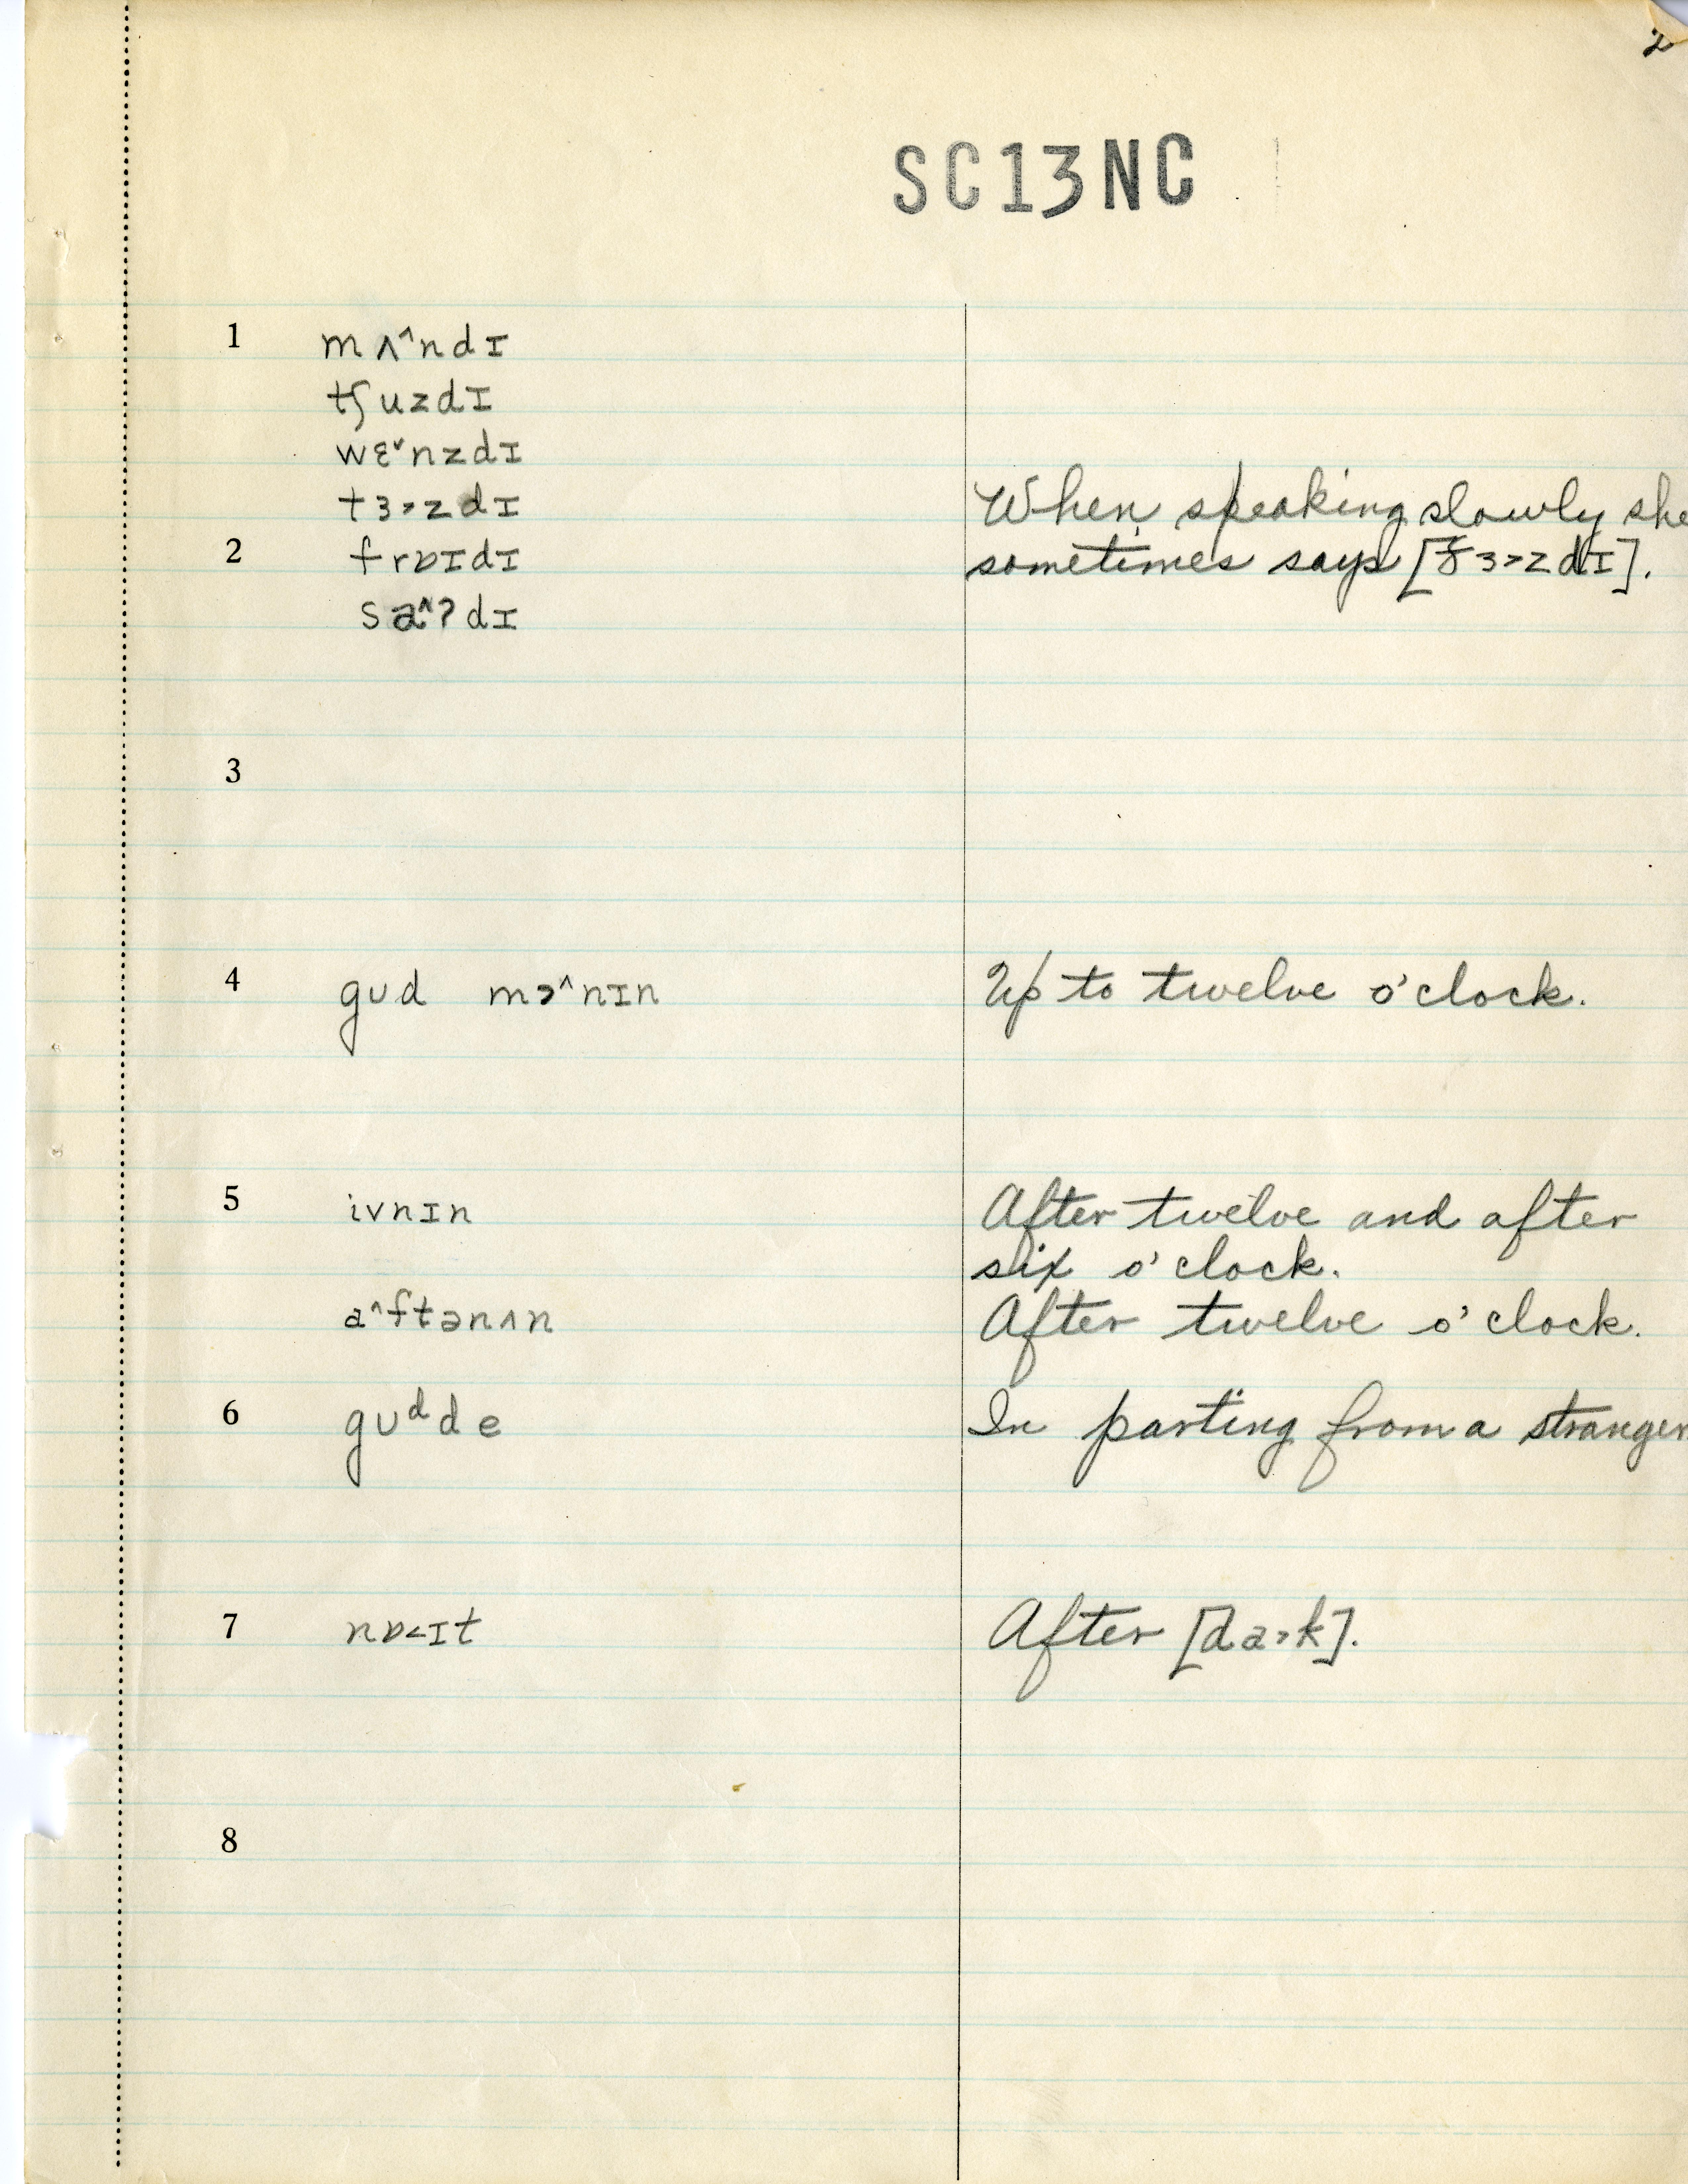 2
SC13NC
1 mʌ˄ndɪ
tʃuzdɪ
wɛ˅nzdɪ
tɜ˃zdɪ When speaking slowly she
2 frɒɪdɪ sometimes says [ɜ˃zdɪ].
sa˄ʔdɪ
3
4 gud mɔ˄nɪn Up to twelve o'clock.
5 ivnɪn After twelve and after
six o'clock.
a˄ftənʌn After twelve o'clock.
6 guᵈde In parting from a stranger
7 nɒ˂ɪt After [da˃k].
8